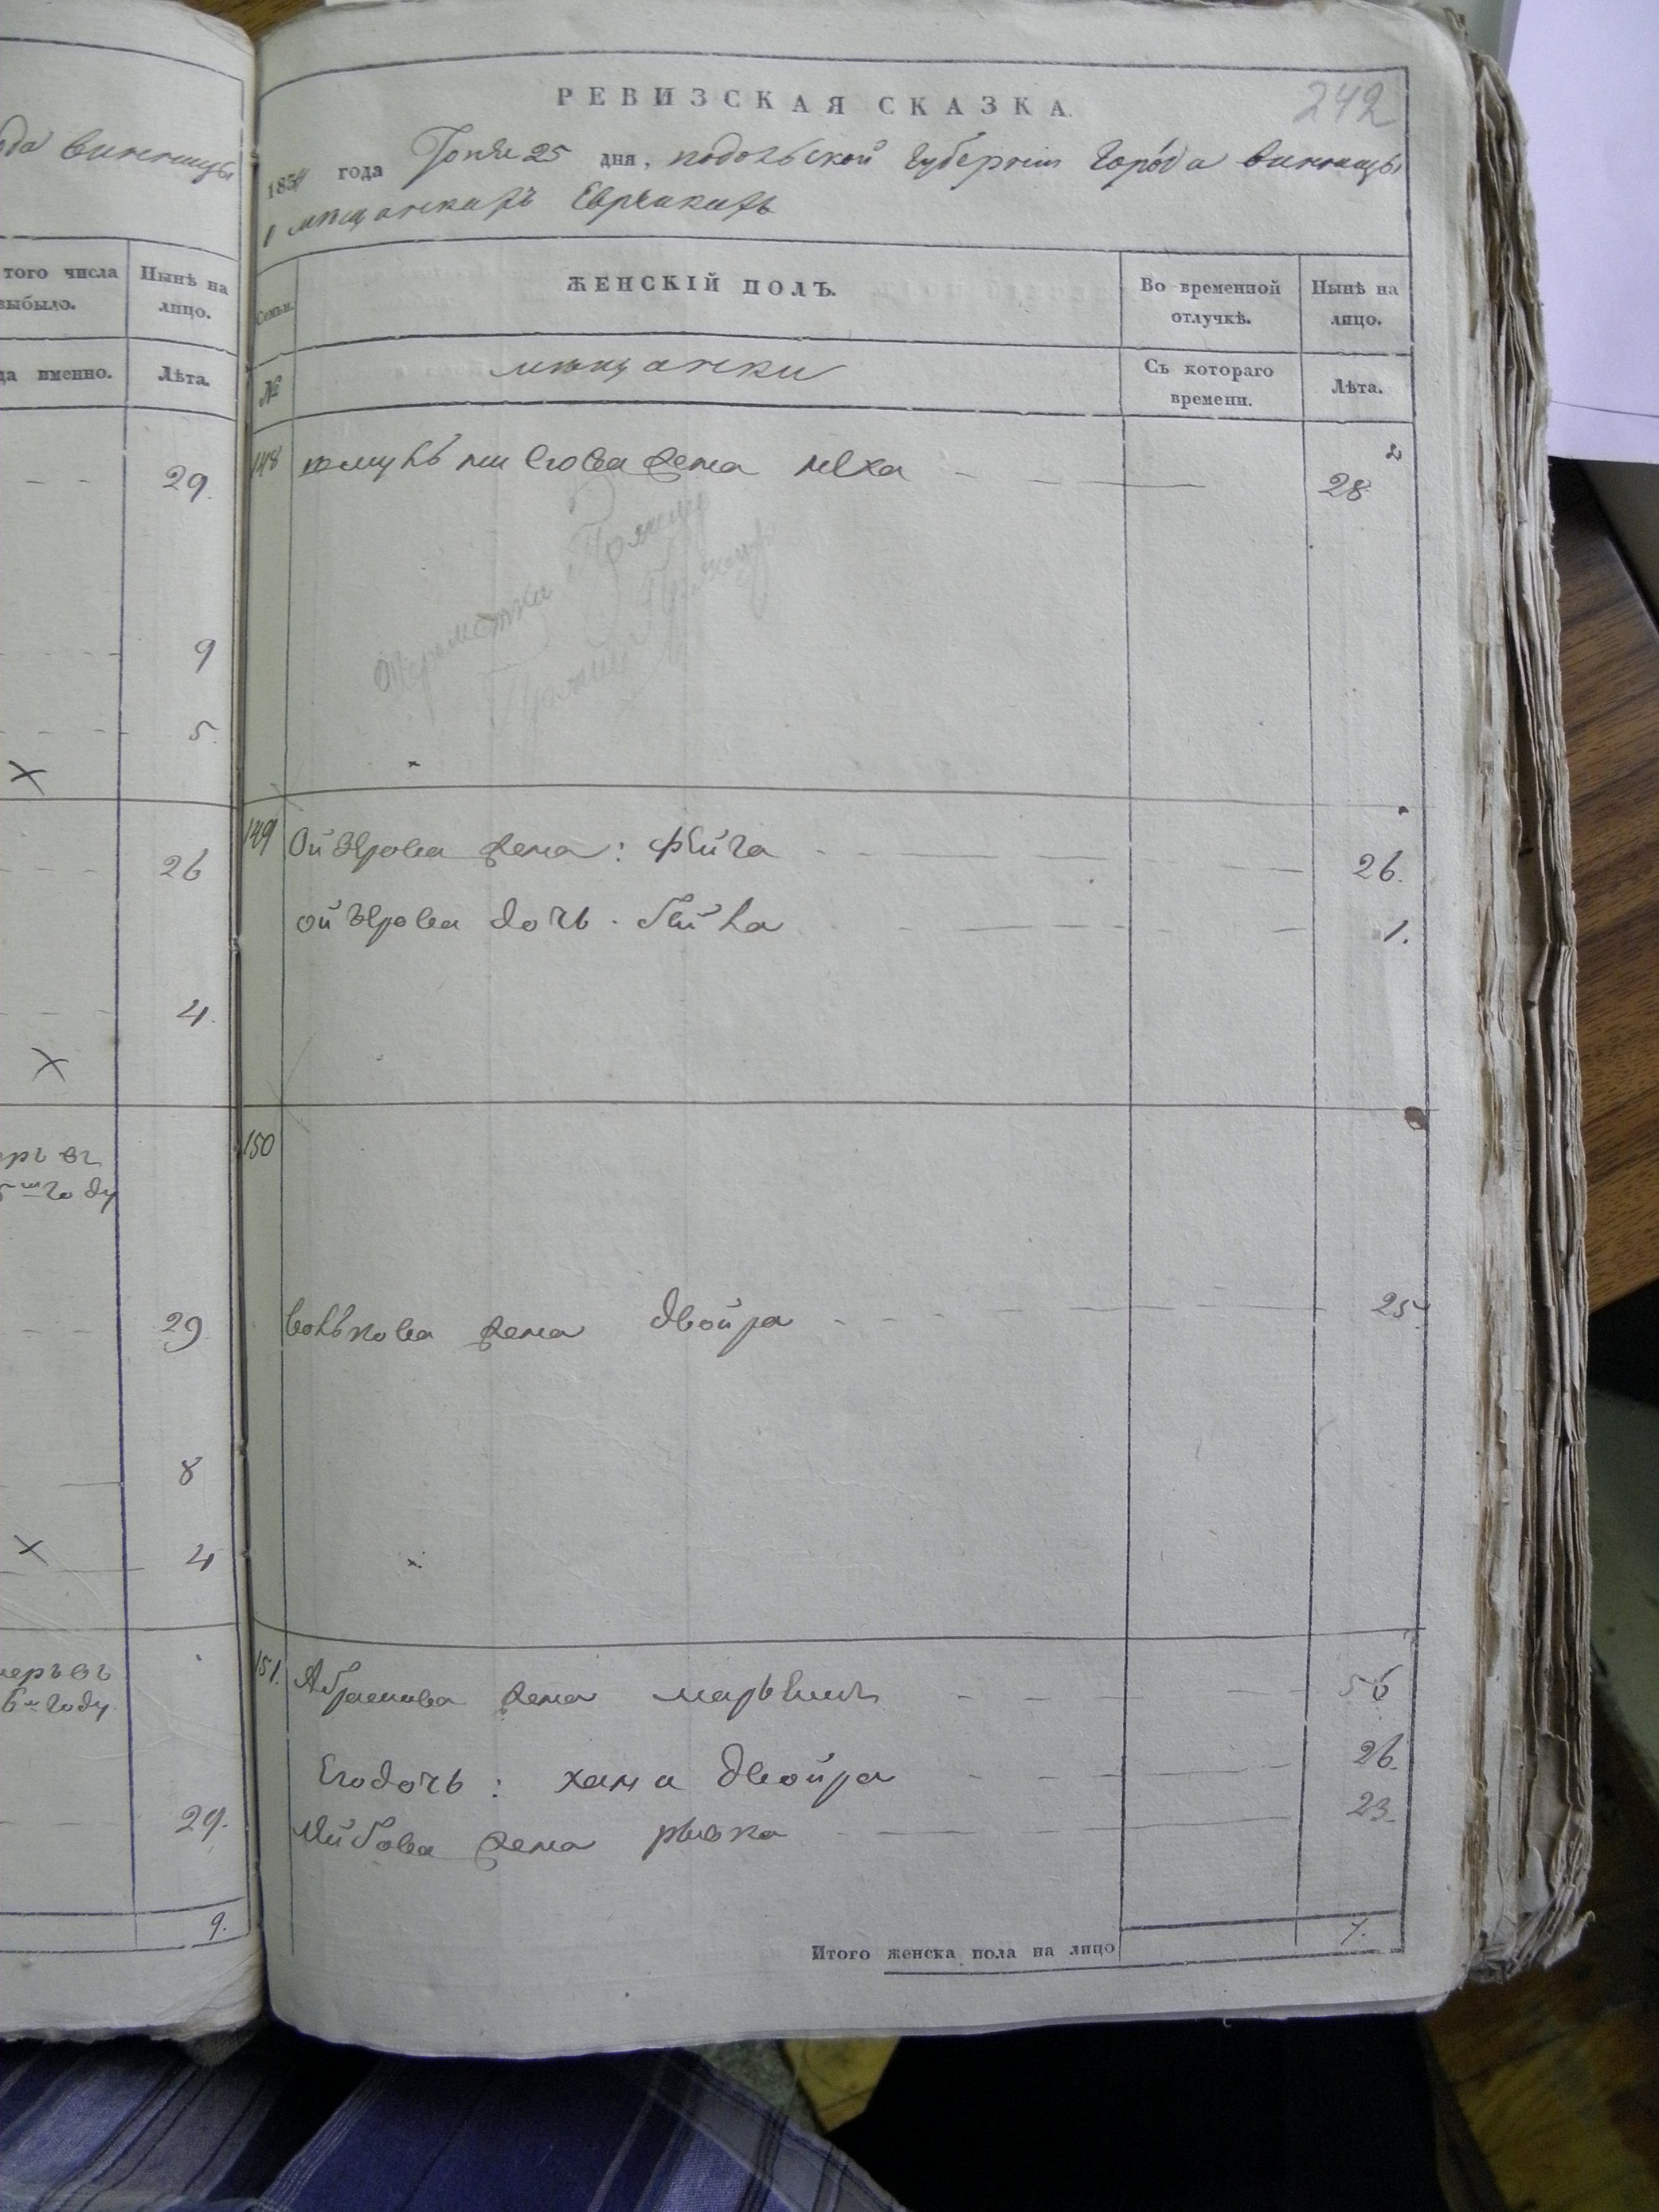 да Винницы
того числа
выбыло.
Нынѣ на
лицо.
да именно.
Лѣта.
29.
9
5
26
4.
ерь въ
году
29
8
4
меръ въ
6м году
29.
9.
РЕВИЗСКАЯ СКАЗКА.
242
1854 года Іюня 25 дня, подольской Губерніи Города Винницы
о мѣщанахъ Евреяхъ
Семьи.
ЖЕНСКІЙ ПОЛЪ.
Во временной
отлучкѣ.
Нынѣ на
лицо.
№
мѣщанки
Съ котораго
времени.
Лѣта.
148 жена 28
149 Ойзерова жена: Фейга 26.
ойзерова дочь. Бейла 1.
150
Волькова жена двойра 25
151. Абрамова жена 56
Его дочь: хана двойра 26.
Лейбова жена рывка 23.
Итого женска пола на лицо 7.